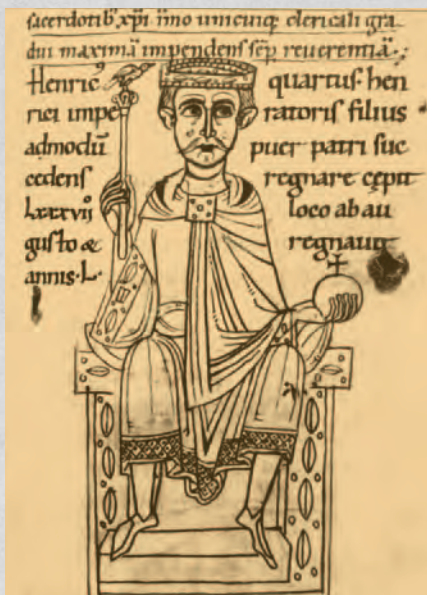 sacerdotib' xp̄i īmo unicuiq; clericali gra-
dui maximā impendens sēp reverentiā.
Henric' quartus hen
rici impe ratoris filius
admodū puer patri suc
cedens regnare cępit
lxxxvij loco ab au
gusto & regnavit
annis .L.